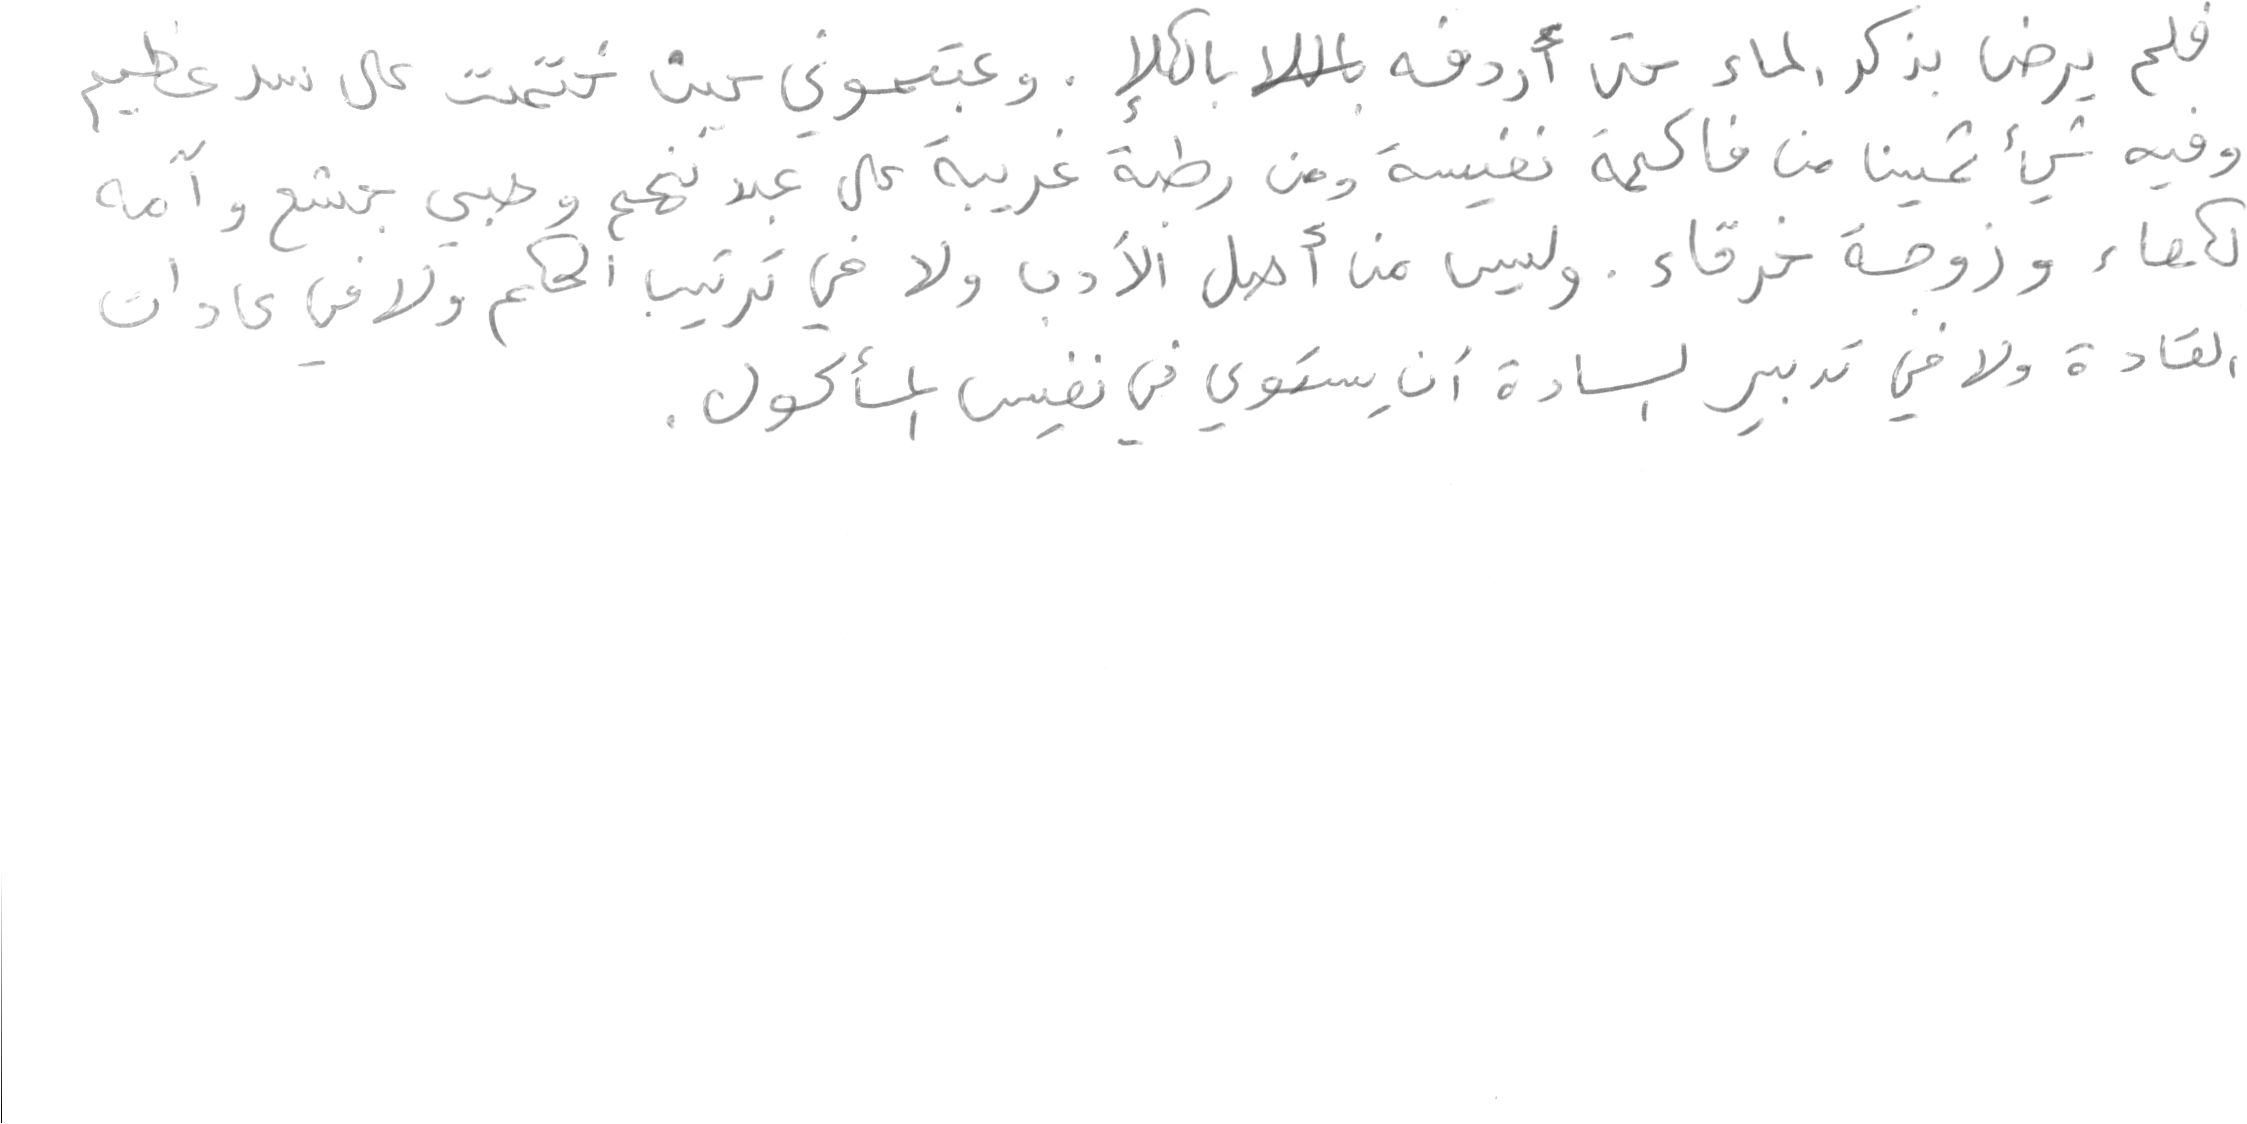 فلم يرض بذكر الماء حتى أردفه بالكلإ . وعبتموني حين ختمت على سد عظيم
وفيه شيأ ثمينا من فاكهة نفيسة ومن رطبة غريبة على عبد نهم وصبي جشع وآمه
لكعاء وزوجة خرقاء . وليس من أصل الأدب ولا في ترتيب الحكم ولا في عادات
القادة ولا في تدبير السادة أن يستوي في نفيس المأكول .